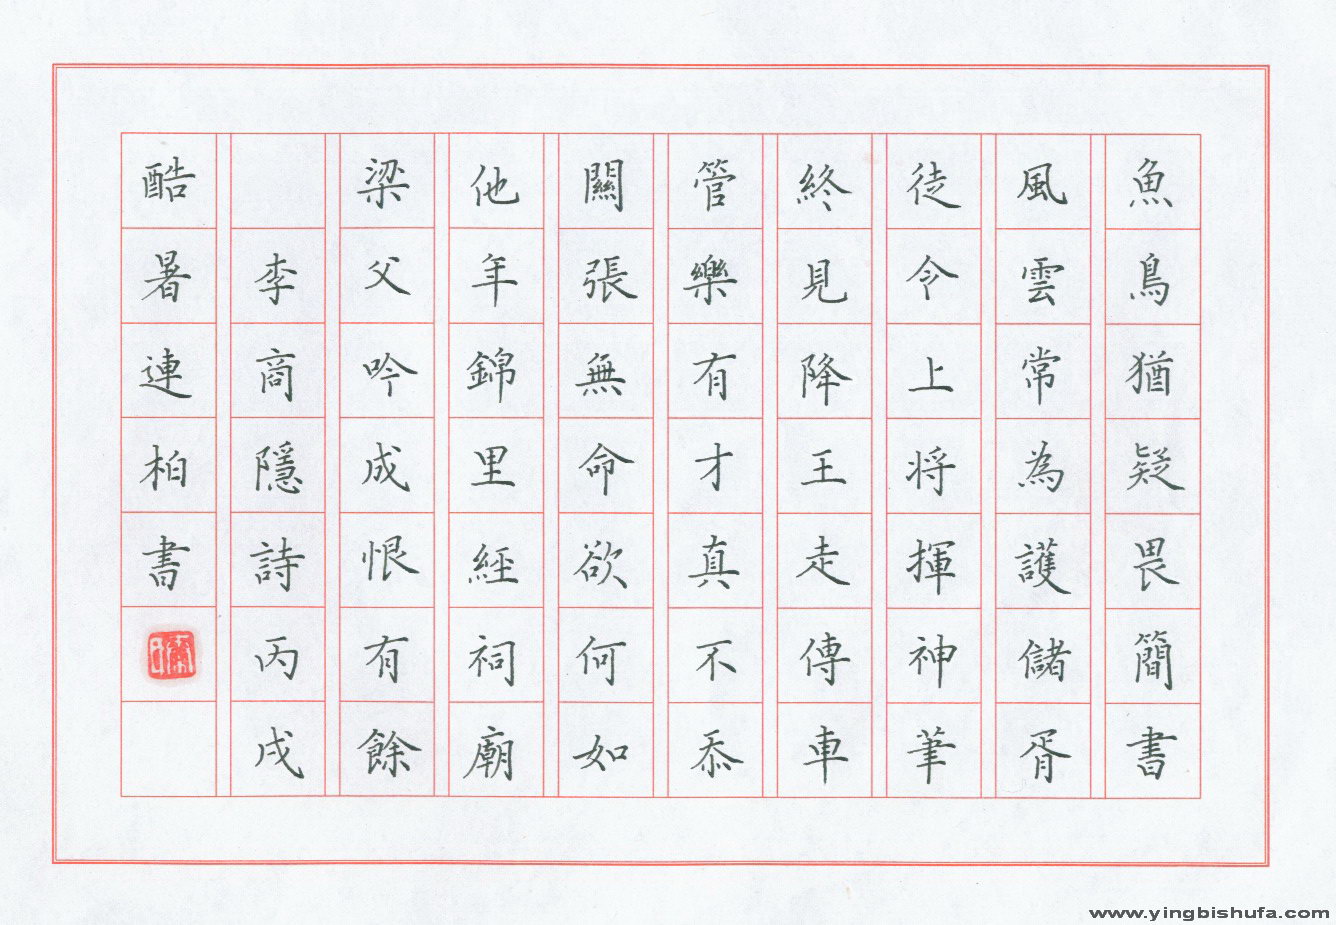 魚鳥猶疑畏簡書
風雲常為護儲胥
徒令上将揮神筆
終見降王走傳車
管樂有才真不忝
關張無命欲何如
他年錦里經祠廟
梁父吟成恨有餘
李商隱詩丙戌
酷暑連柏書
www.yingbishufa.com